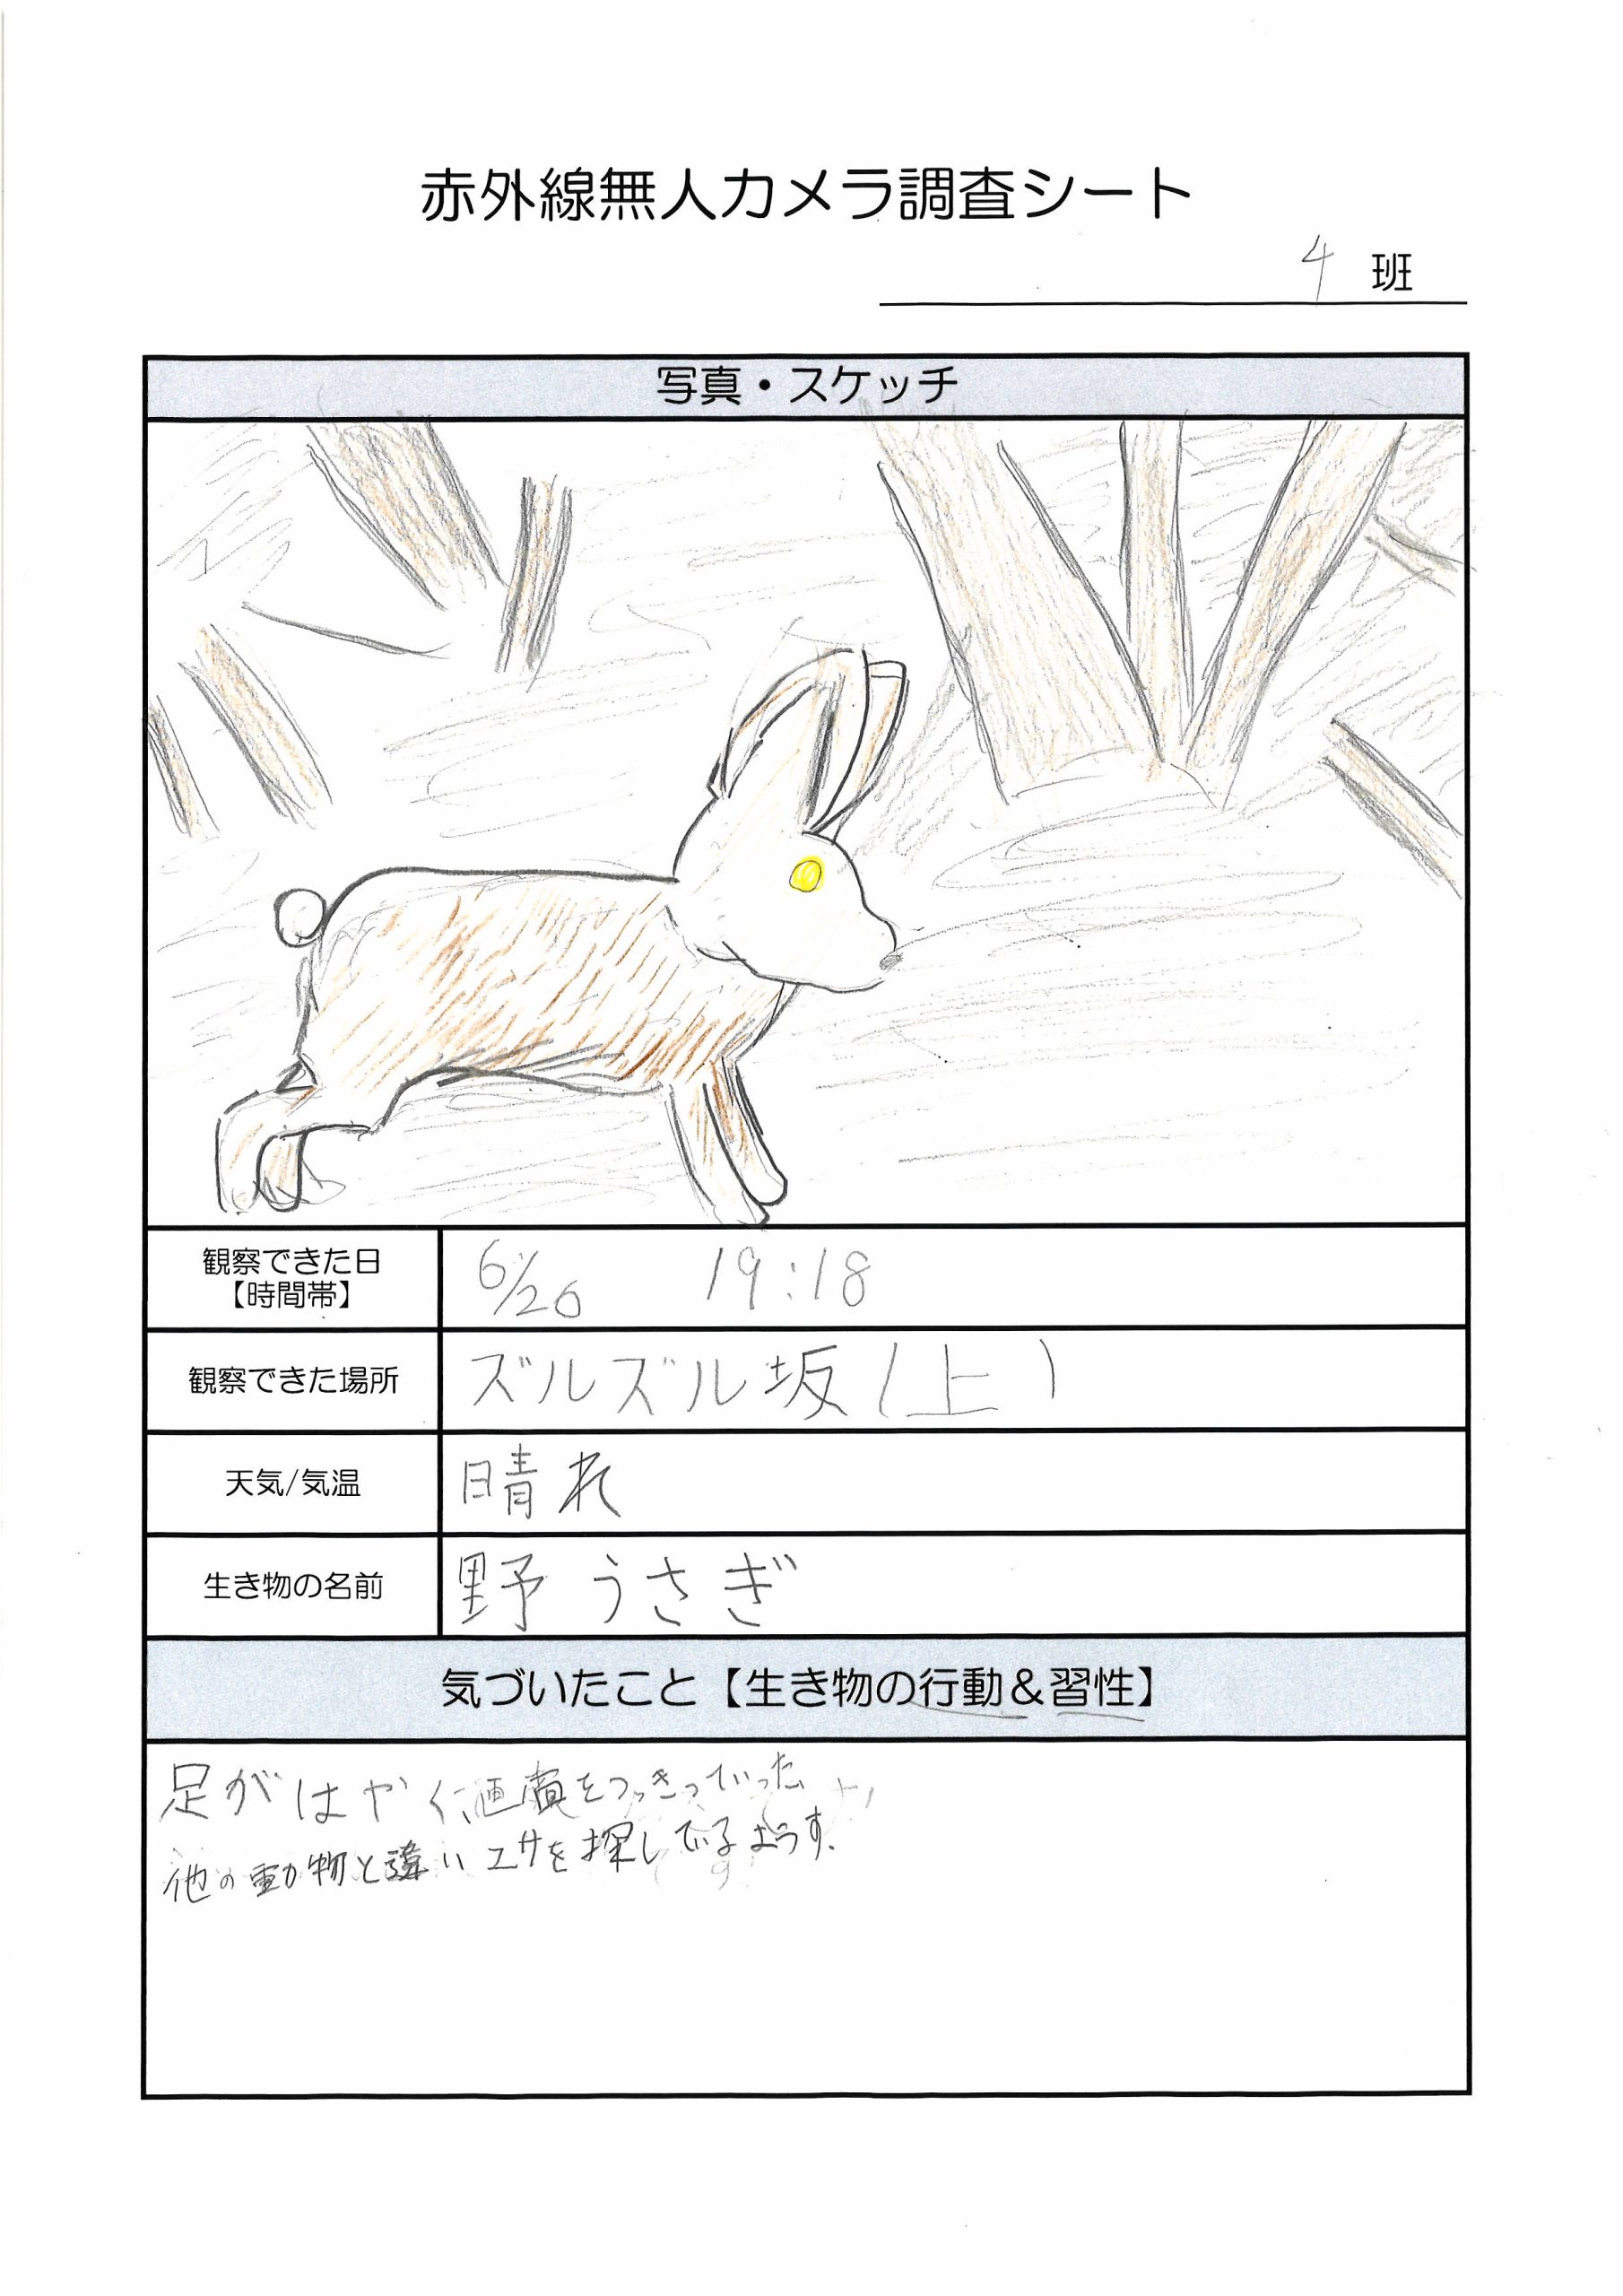 赤外線無人カメラ調査シート
4 班
写真・スケッチ
観察できた日
【時間帯】
6/26 19:18
観察できた場所
ズルズル坂(上)
天気/気温
晴れ
生き物の名前
野うさぎ
気づいたこと【生き物の行動&習性】
足がはやく、画質をつっきっていった
他の動物と違いエサを探しているようす.